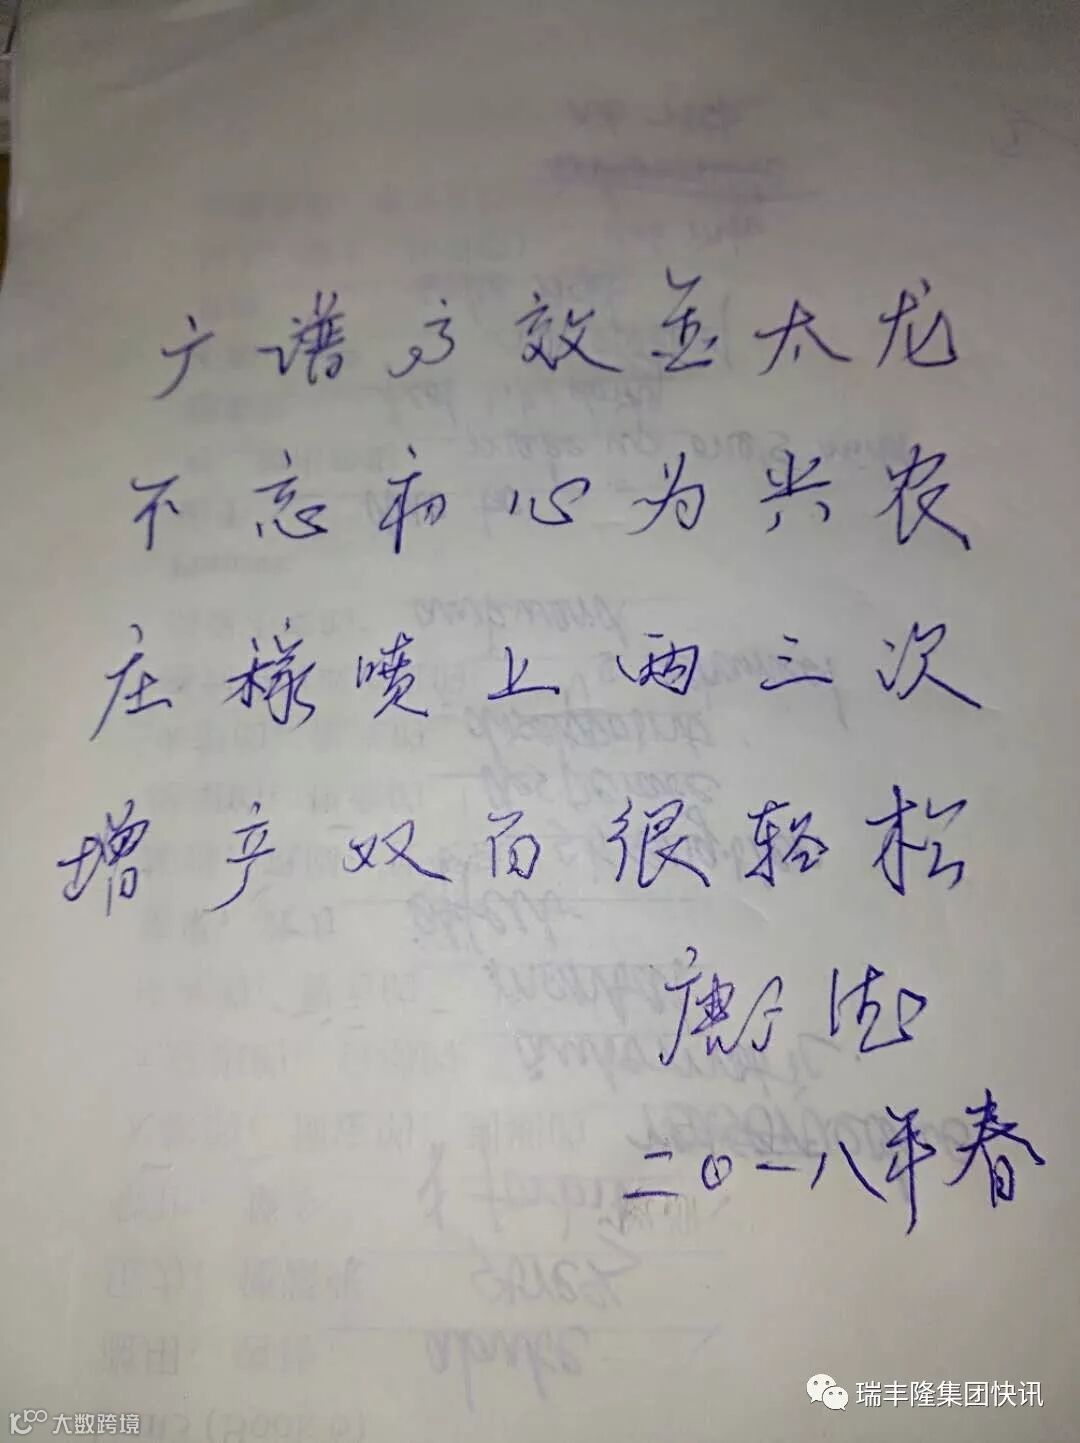 广谱高效益太龙
不忘初心为兴农
庄稼喷上两三次
增产奴百很轻松
二〇一八年春
瑞丰隆集团快讯
大数跨境